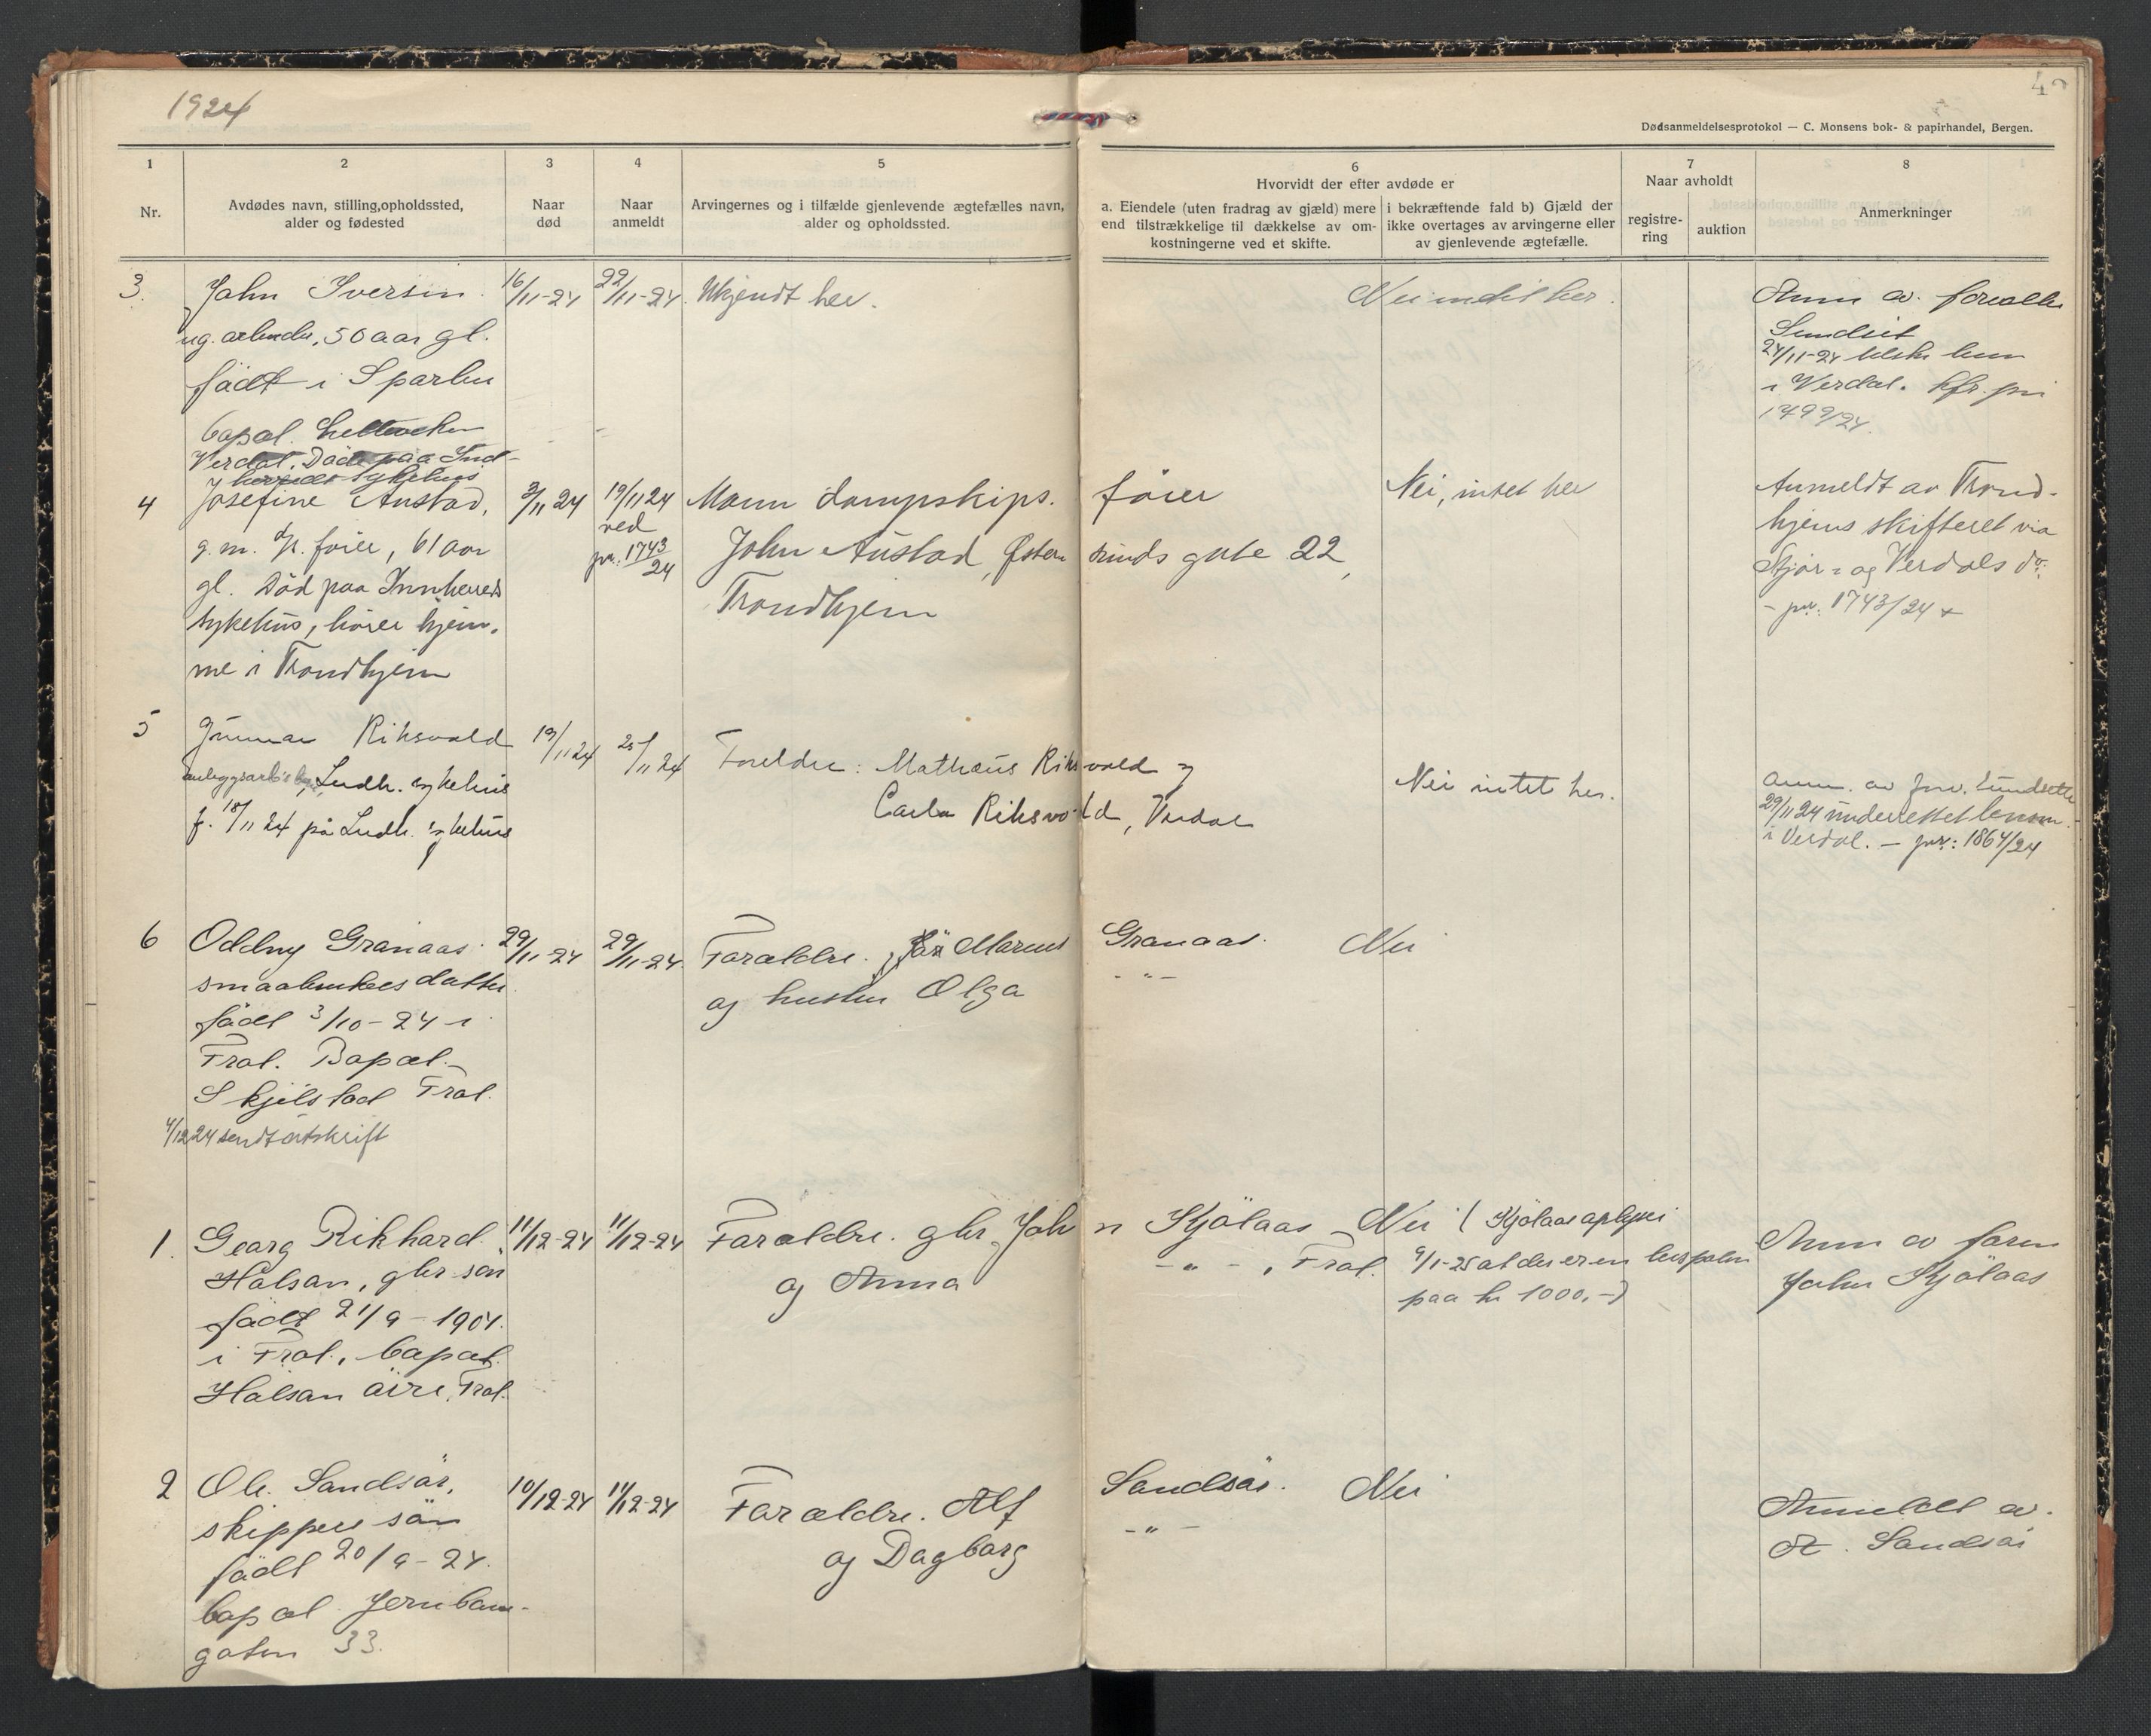 1924
4
Dødsanmeldelsesprotokol — C. Monsens bok- & papirhandel, Bergen.
1
Nr.
2
Avdødes navn, stilling,opholdssted,
alder og fødested
3
Naar
død
4
Naar
anmeldt
5
Arvingernes og i tilfælde gjenlevende ægtefælles navn,
alder og opholdssted.
6
Hvorvidt der efter avdøde er
a. Eiendele (uten fradrag av gjæld) mere
end tilstrækkelige til dækkelse av om-
kostningerne ved et skifte.
i bekræftende fald b) Gjæld der
ikke overtages av arvingerne eller
av gjenlevende ægtefælle.
7
Naar avholdt
registre-
ring
auktion
8
Anmerkninger
3.
John Iversen
ug. arbeider, 50 aar gl.
född i Sparbu
bopæl
Verdal. Död paa Ind-
herreds sykehus
16/11-24
22/11-24
Ukjendt her.
Nei intet her.
Anm av forvalter
Sundset
24/11-24
i Verdal. kfr. pr
1799/24
4
Josefine Austad,
g.m. d/s. förer, 61 aar
gl. Död paa Innhereds
sykehus, hörer hjem-
me i Trondhjem
3/11 24
19/11 24
ved
pr. 1743/24
Mann dampskips. förer
John Austad, Östersunds gate 22,
Trondhjem
Nei, intet her
Anmeldt av Trond-
hjems skifteret via
Stjör- og Verdals do:
- pr: 1743/24
5
Gunnar Riksvold
anleggsarb's, Indh. sykehus
f. 18/11 24 på Indh. sykehus
19/11 24
25/11 24
Foreldre: Matheus Riksvold og
Carla Riksvold, Verdal
Nei intet her.
Anm. av forv. Sundseth
29/11 24 underrettet lensm.
i Verdal. - pr: 1864/24
6
Oddny Granaas
smaabrukers datter
född 3/10-24 i
Frol. Bopæl
Skjelstad Frol.
4/12 24 sendt utskrift
29/11-24
29/11-24.
Foræeldre. Marius Granaas.
og hustru Olga -"-
Nei
1.
Georg Rikhard
Halsan, gbr sön
född 21/9-1904.
i Frol., bopæl
Halsan övre, Frol.
11/12-24
11/12-24
Forældre. gbr. John Kjölaas
og Anna -"-, Frol.
Nei ( Kjölaas oplyser
9/1-25 at der er en livspolise
paa kr 1000,-)
Anm av faren
John Kjölaas
2
Ole Sandsör,
skippers sön
född 20/9-24.
bopæl Jernbane-
gaten 33.
10/12-24
11/12-24
Forældre. Alf Sandsör.
og Dagborg -"-
Nei
Anmeldt av
A. Sandsör